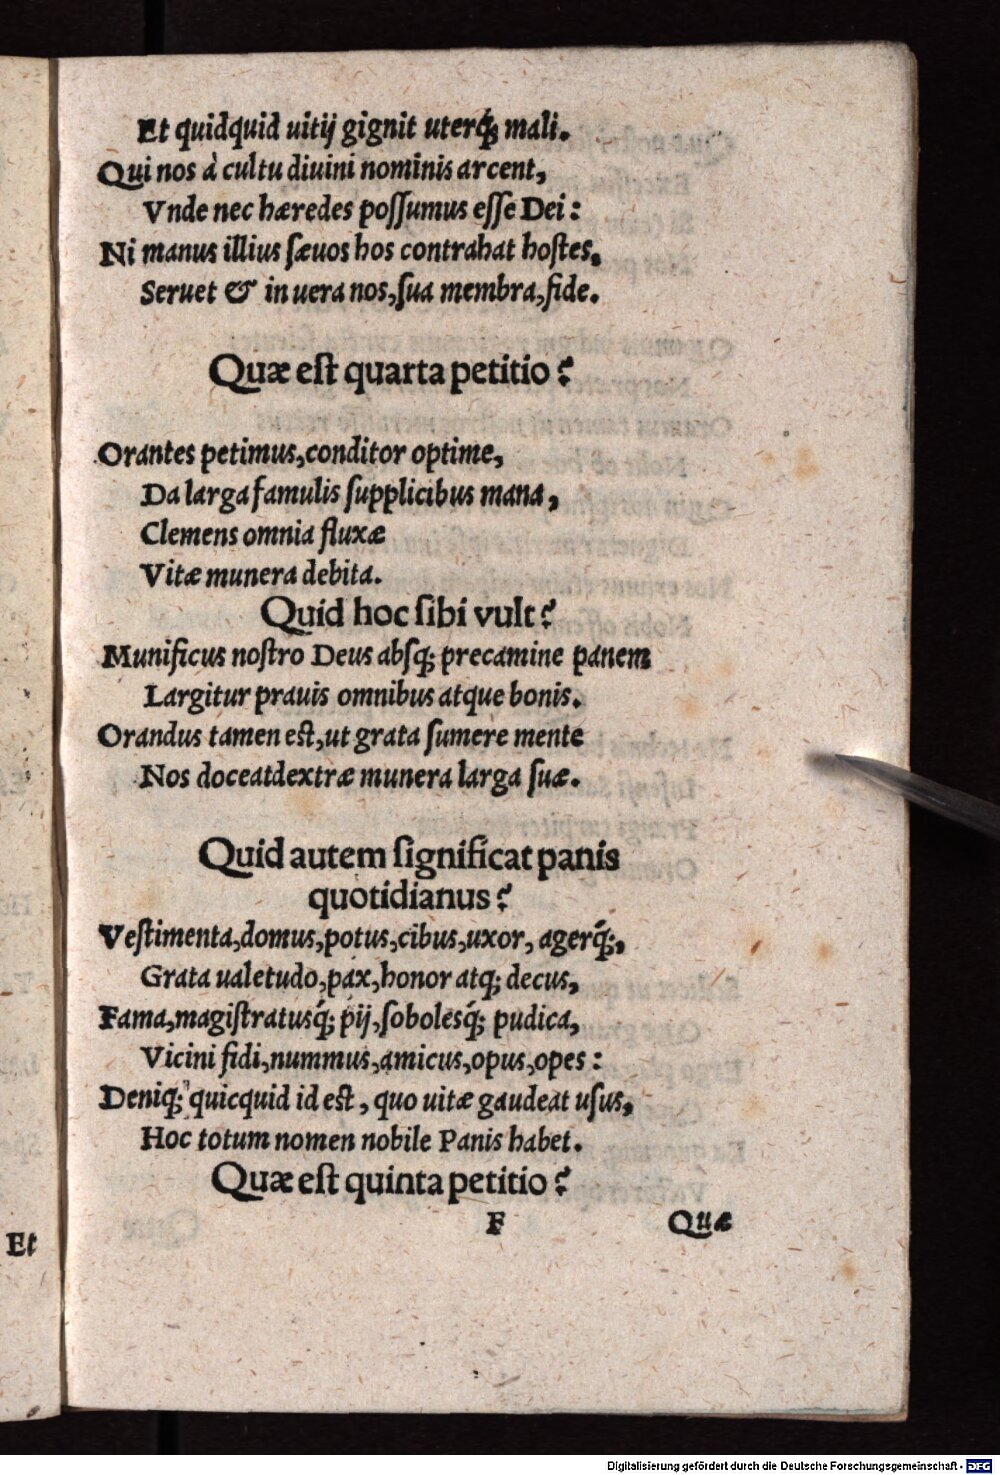 Et quidquid uitij gignit uterq́; mali.
Qui nos à cultu diuini nominis arcent,
Vnde nec hæredes poſſumus eſſe Dei:
Ni manus illius ſæuos hos contrahat hoſtes,
Seruet & in uera nos, ſua membra, fide.
Quæ eſt quarta petitio?
Orantes petimus, conditor optime,
Da larga famulis ſupplicibus mana,
Clemens omnia fluxæ
Vitæ munera debita.
Quid hoc ſibi vult?
Munificus noſtro Deus abſq; precamine panem
Largitur prauis omnibus atque bonis.
Orandus tamen eſt, ut grata ſumere mente
Nos doceatdextræ munera larga ſuæ.
Quid autem ſignificat panis
quotidianus?
Veſtimenta, domus, potus, cibus, uxor, agerq́;,
Grata ualetudo, pax, honor atq; decus,
Fama, magiſtratusq́; pij, ſobolesq́; pudica,
Vicini fidi, nummus, amicus, opus, opes:
Deniq; quicquid id eſt, quo uitæ gaudeat uſus,
Hoc totum nomen nobile Panis habet.
Quæ eſt quinta petitio?
F Quæ
Et
Digitalisierung gefördert durch die Deutsche Forschungsgemeinschaft - DFG